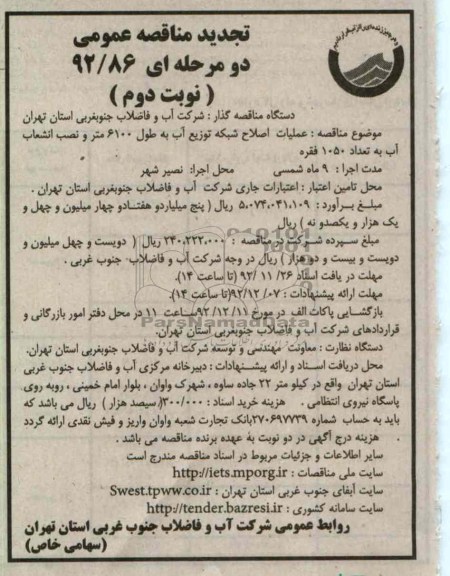 تجدید مناقصه عمومی
دو مرحله ای ۹۲/۸۶
( نوبت دوم )
دستگاه مناقصه گذار : شرکت آب و فاضلاب جنوبغربی استان تهران
موضوع مناقصه : عملیات اصلاح شبکه توزیع آب به طول ۶۱۰۰ متر و نصب انشعاب
آب به تعداد ۱۰۵۰ فقره
مدت اجرا : ۹ ماه شمسی محل اجرا: نصیر شهر
محل تامین اعتبار : اعتبارات جاری شرکت آب و فاضلاب جنوبغربی استان تهران .
مبلغ برآورد : ۵،۰۷۴،۰۴۱،۱۰۹ ریال ( پنج میلیاردو هفتادو چهار میلیون و چهل و
یک هزار و یکصدو نه ) ریال
مبلغ سپرده شرکت در مناقصه : ۲۴۰،۲۲۲،۰۰۰ ریال ( دویست و چهل میلیون و
دویست و بیست و دو هزار ) ریال در وجه شرکت آب و فاضلاب- جنوب غربی .
مهلت دریافت اسناد ۲۶/ ۱۱/ ۹۲ (تا ساعت ۱۴).
مهلت ارائه پیشنهادات : ۰۷/ ۹۲/۱۲(تا ساعت ۱۴).
بازگشایی پاکات الف در مورخ ۱۱/ ۱۲/ ۹۲ساعت ۱۱ در محل دفتر امور بازرگانی و
قراردادهای شرکت آب و فاضلاب جنوبغربی استان تهران.
دستگاه نظارت : معاونت مهندسی و توسعه شرکت آب و فاضلاب جنوبغربی استان تهران.
محل دریافت اسناد و ارائه پیشنهادات : دبیرخانه مرکزی آب و فاضلاب جنوب غربی
استان تهران واقع در کیلو متر ۲۲ جاده ساوه ، شهرک واوان ، بلوار امام خمینی ، روبه روی
پاسگاه نیروی انتظامی . هزینه خرید اسناد : ۳۰۰/۰۰۰(سیصد هزار ) ریال می باشد که
باید به حساب شماره ۲۷۰۶۹۷۷۳۹بانک تجارت شعبه واوان واریز و فیش نقدی ارائه گردد
. هزینه درج آگهی در دو نوبت به عهده برنده مناقصه می باشد .
سایر اطلاعات و جزئیات مربوط در اسناد مناقصه مندرج است
سایت ملی مناقصات : http://iets.mporg.ir
سایت آبفای جنوب غربی استان تهران : Swest.tpww.co.ir
سایت سامانه کشوری : http://tender.bazresi.ir
روابط عمومی شرکت آب و فاضلاب جنوب غربی استان تهران
(سهامی خاص)